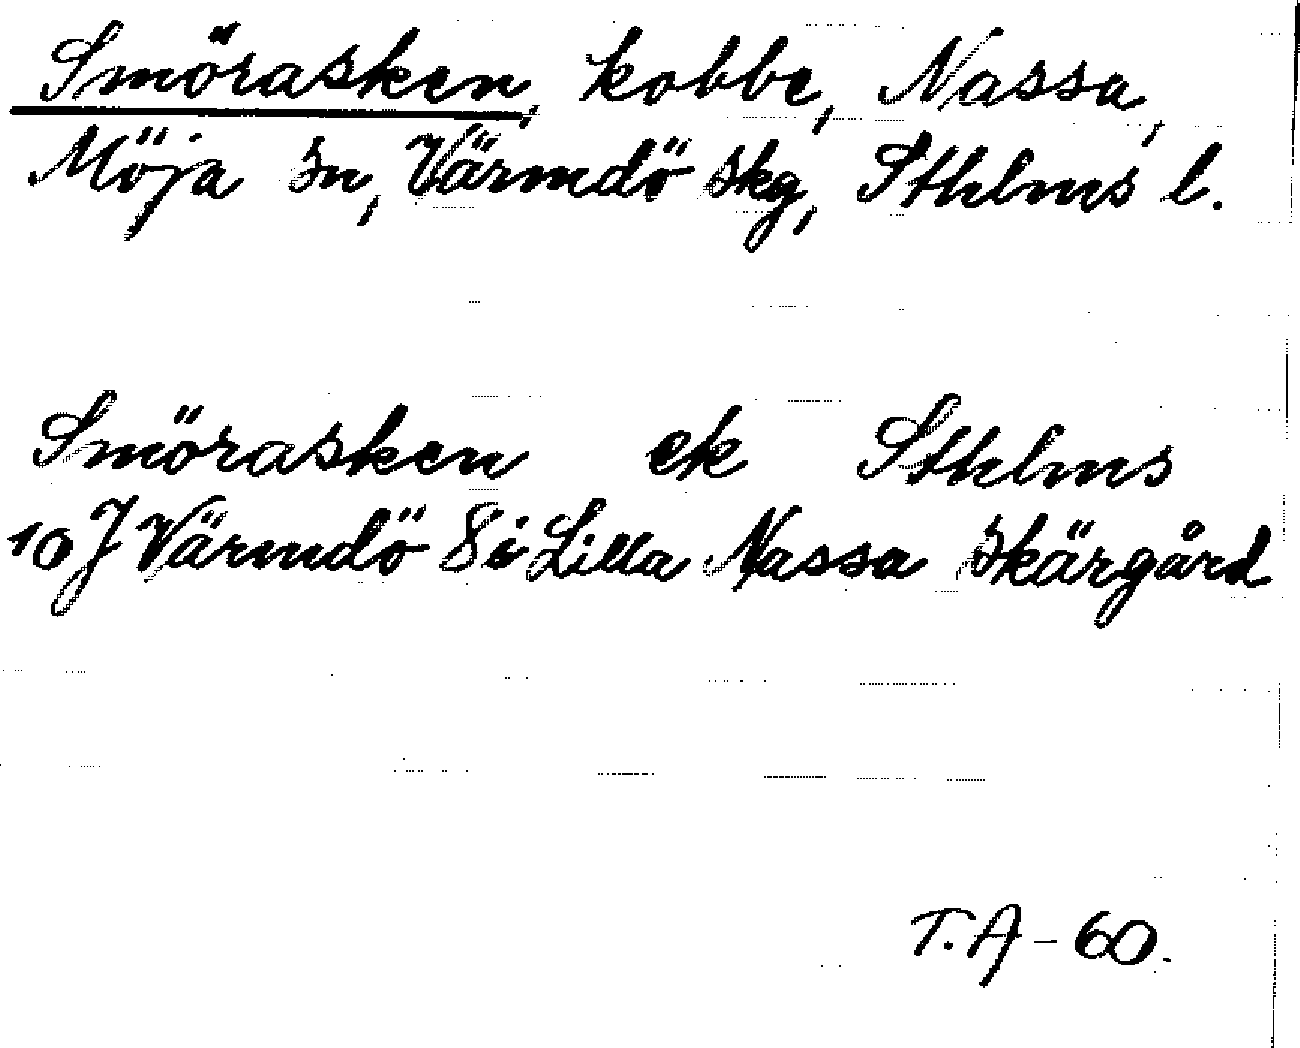 Smörasken, kobbe, Nassa,
Möja sn, Värmdö skg, Sthlms l.
Smörasken ek Sthlms
10 J Värmdö 8 i Lilla Nassa Skärgård
T.A-60.